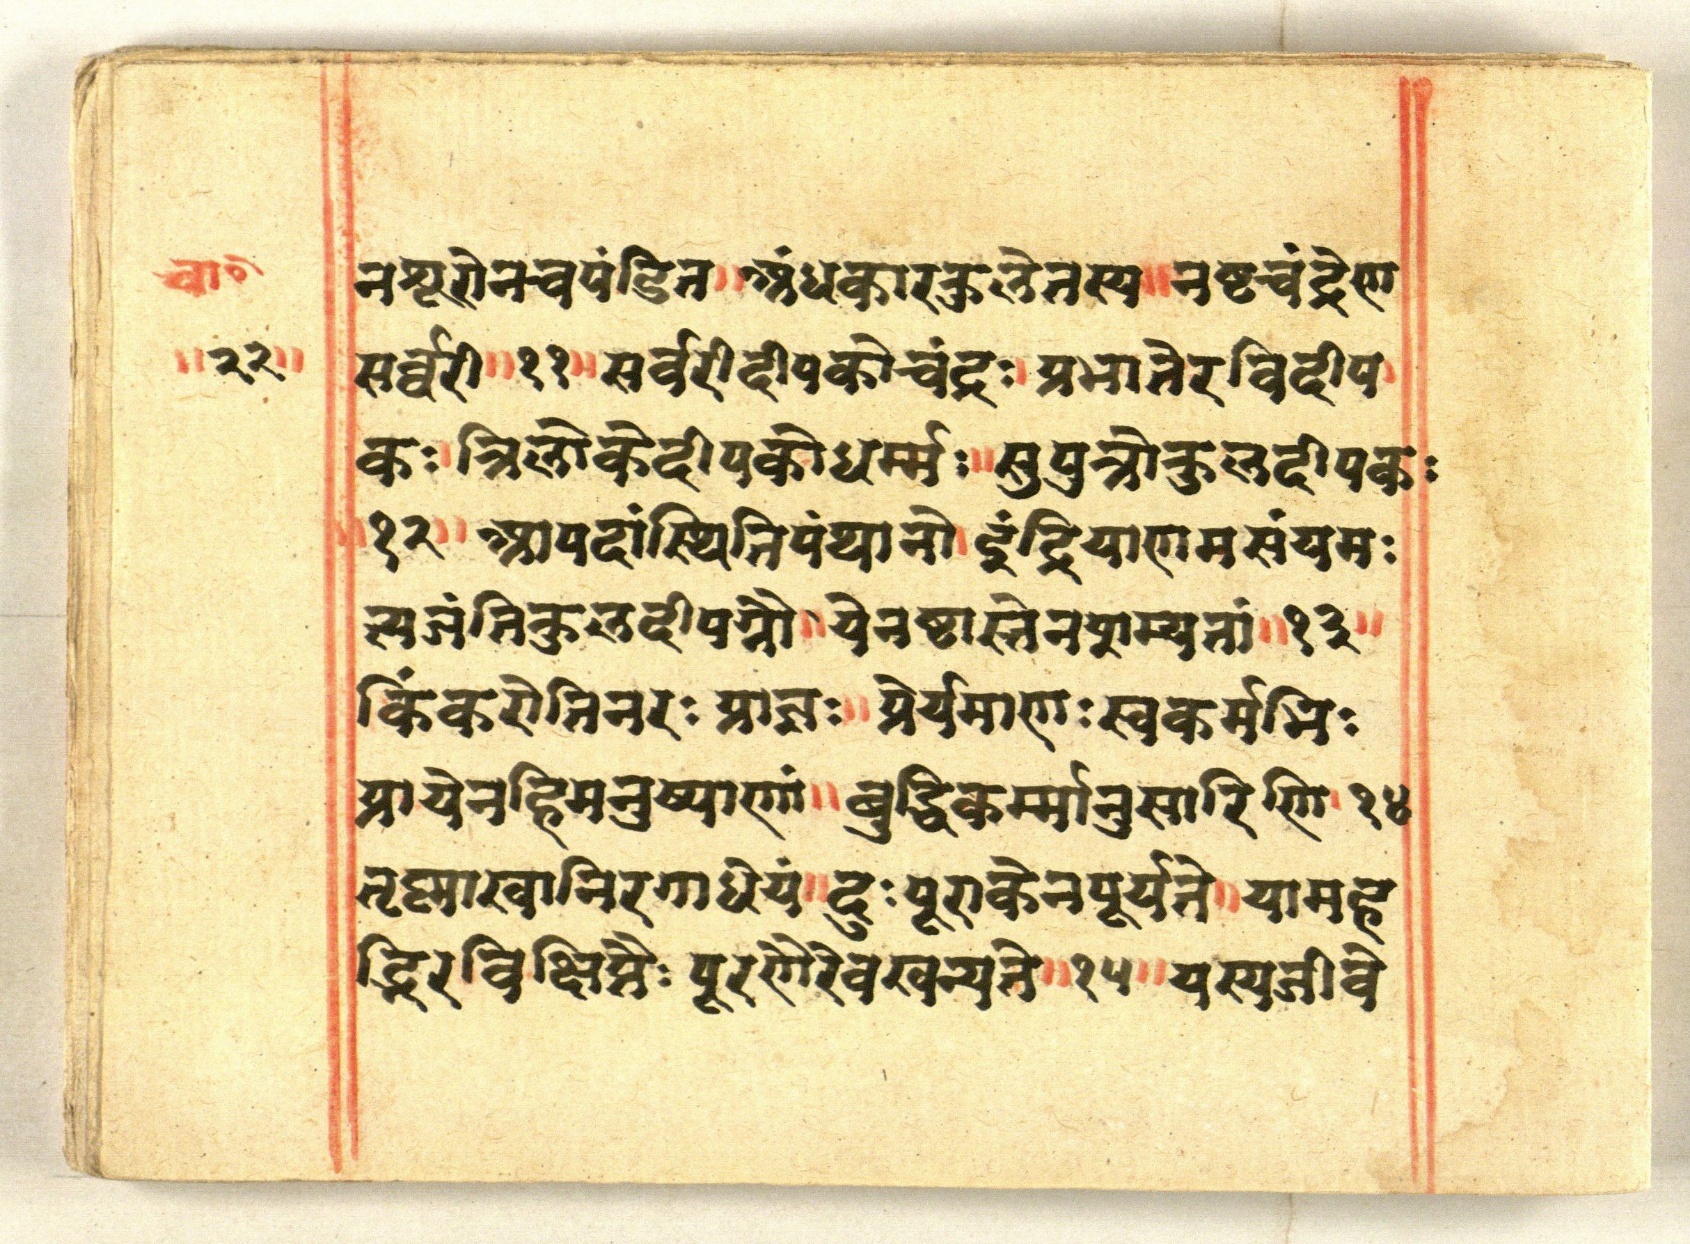 चा॰
॥२२॥
नशूरोनचपंडित॥अंधकारकुलेतस्य॥नष्टचंद्रेण
सर्व्वरी॥११॥सर्वरीदीपकोचंद्रः।प्रभातेरविदीप
कः।त्रिलोकेदीपकोधर्म्मः॥सुपुत्रोकुलदीपकः
॥१२॥आपदांस्थितिपंथानो।इंद्रियाणामसंयमः
त्यजंतिकुलदीपग्नौ॥येनष्टास्तेनपुाम्यतां॥१३॥
किंकरोतिनरःप्राज्ञः॥प्रेर्यमाणःस्वकर्मभिः
प्रायेनहिमनुष्याणां॥बुद्धिकर्म्मानुसारिणि।१४
तृष्णाखानिरगाधेयं॥दुःपूराकेनपूर्यते॥यामह
द्भिरविक्षिप्तैःपूरणैरेवखन्यते॥१५॥यस्यजीवे